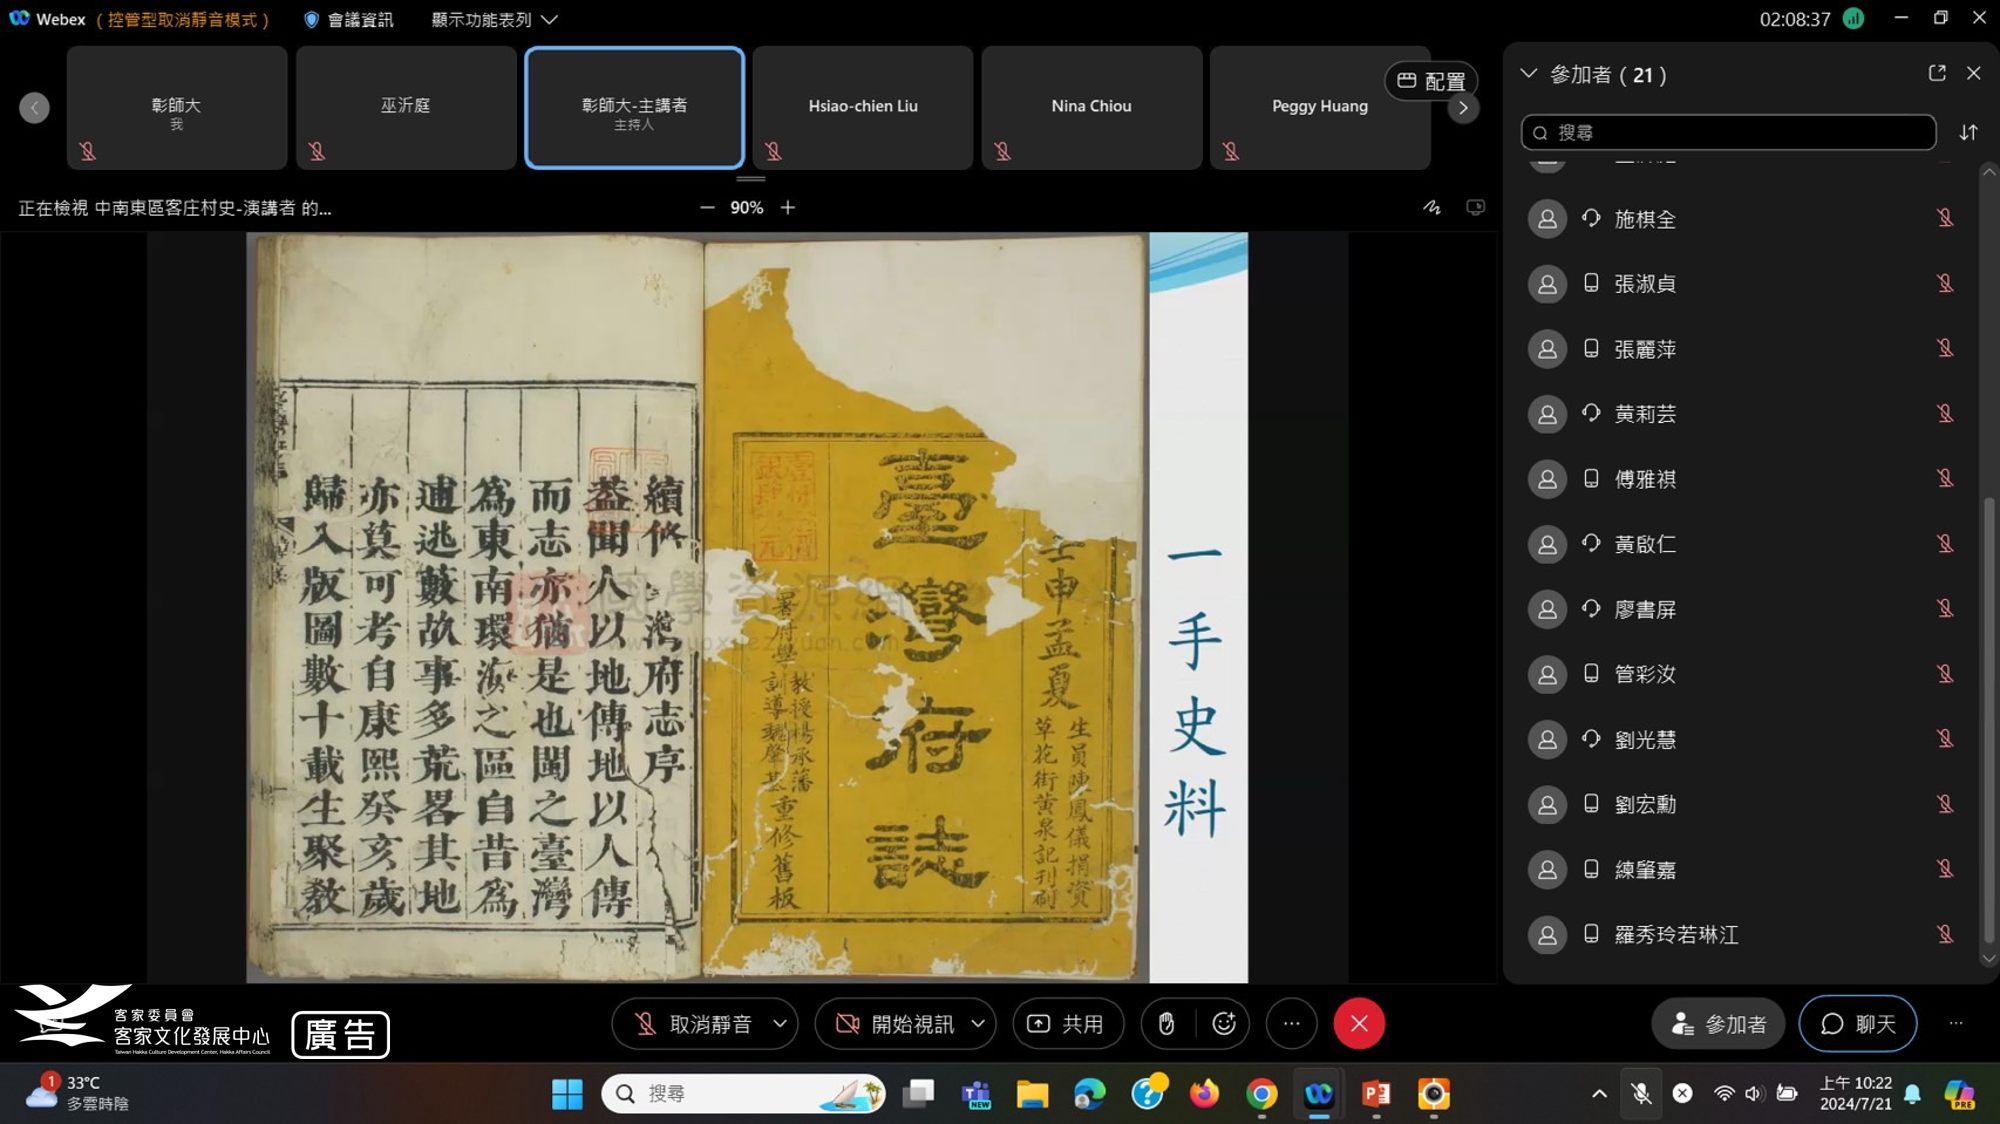 Webex
(控管型取消靜音模式)
會議資訊
顯示功能表列
02:08:37
彰師大
我
巫沂庭
彰師大-主講者
主持人
Hsiao-chien Liu
Nina Chiou
Peggy Huang
配置
正在檢視 中南東區客庄村史-演講者 的...
90%
參加者 ( 21 )
搜尋
施棋全
張淑貞
張麗萍
黃莉芸
傅雅祺
黃啟仁
廖書屏
管彩汝
劉光慧
劉宏勳
練肇嘉
羅秀玲若琳江
一手史料
壬申孟夏
生員陳鳳儀捐資
草花街黃泉記刊刷
臺灣府誌
署府學
教授楊承藩
訓導魏肇基
重修舊板
國學資源網
續修
灣府志序
蓋聞人以地傳地以人傳
而志亦猶是也閩之臺灣
為東南環海之區自昔為
逋逃藪故事多荒畧其地
亦莫可考自康熙癸亥歲
歸入版圖數十載生聚教
客家委員會
客家文化發展中心
Taiwan Hakka Culture Development Center, Hakka Affairs Council
廣告
取消靜音
開始視訊
共用
參加者
聊天
1
33°C
多雲時陰
搜尋
NEW
上午 10:22
2024/7/21
PRE